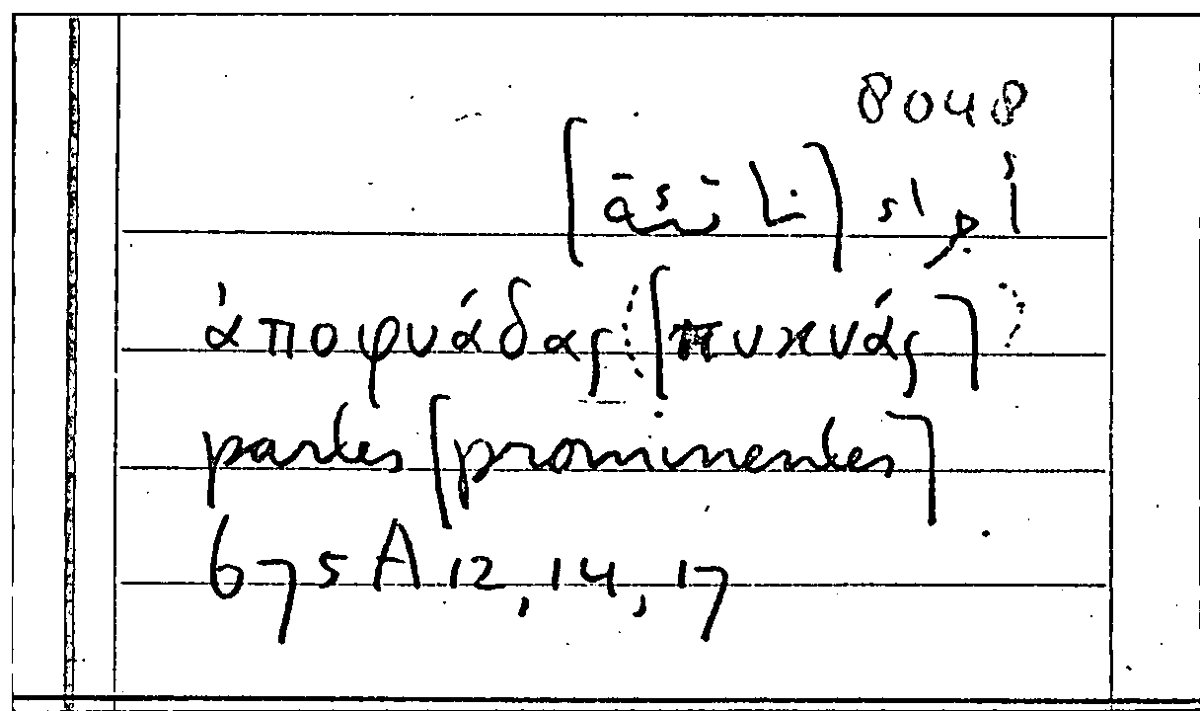 8048
أجزاء [ناتئة]
ἀποφυάδας ([πυκνάς])
partes [prominentes]
675 A 12, 14, 17